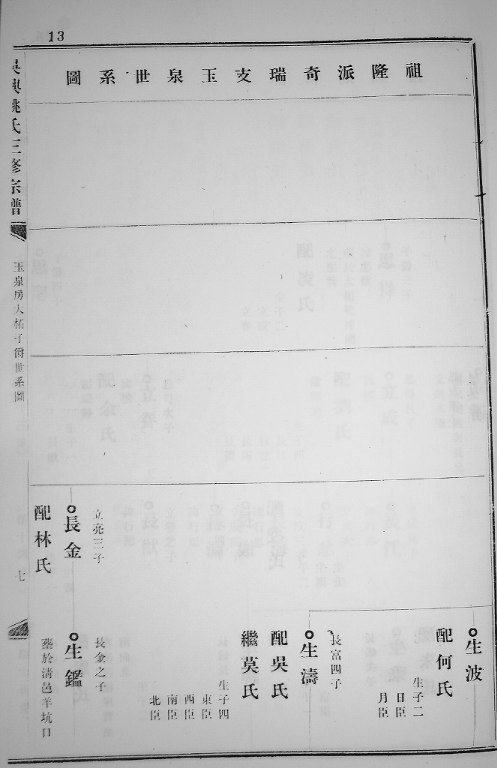 13
祖隆派奇瑞支玉泉世系圖
吳興姚氏三修宗譜
玉泉房大柘子尚世系圖
七
生波
配何氏
生子二
日臣
月臣
生濤
長富四子
配吳氏
繼莫氏
生子四
東臣
西臣
南臣
北臣
長金
立亮三子
配林氏
生鑑
長金之子
塟於清邑羊坑口